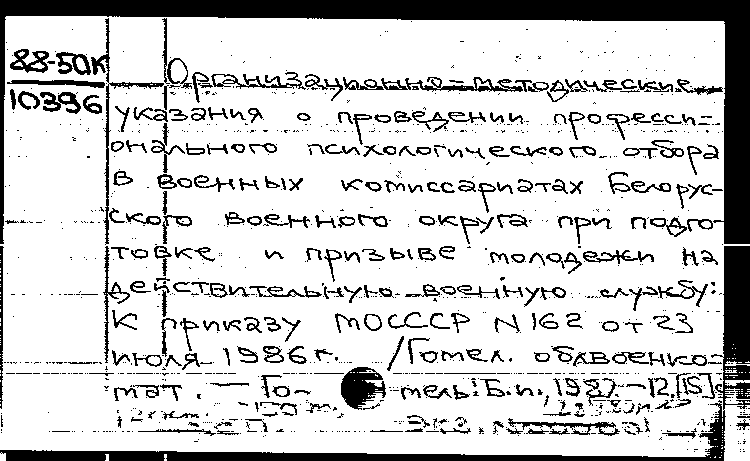 88-50К
10396
Организационно-методические
указания о проведении професси-
онального психологического отбора
в военных комиссариатах Белорус-
ского военного округа при подго-
товке и призыве молодежи на
действительную военную службу:
К приказу МОСССР N 162 от 23
июля 1986 г. /Гомел. облвоенко-
мат. — Го- мель: Б.и., 1987 — 12, [15] с